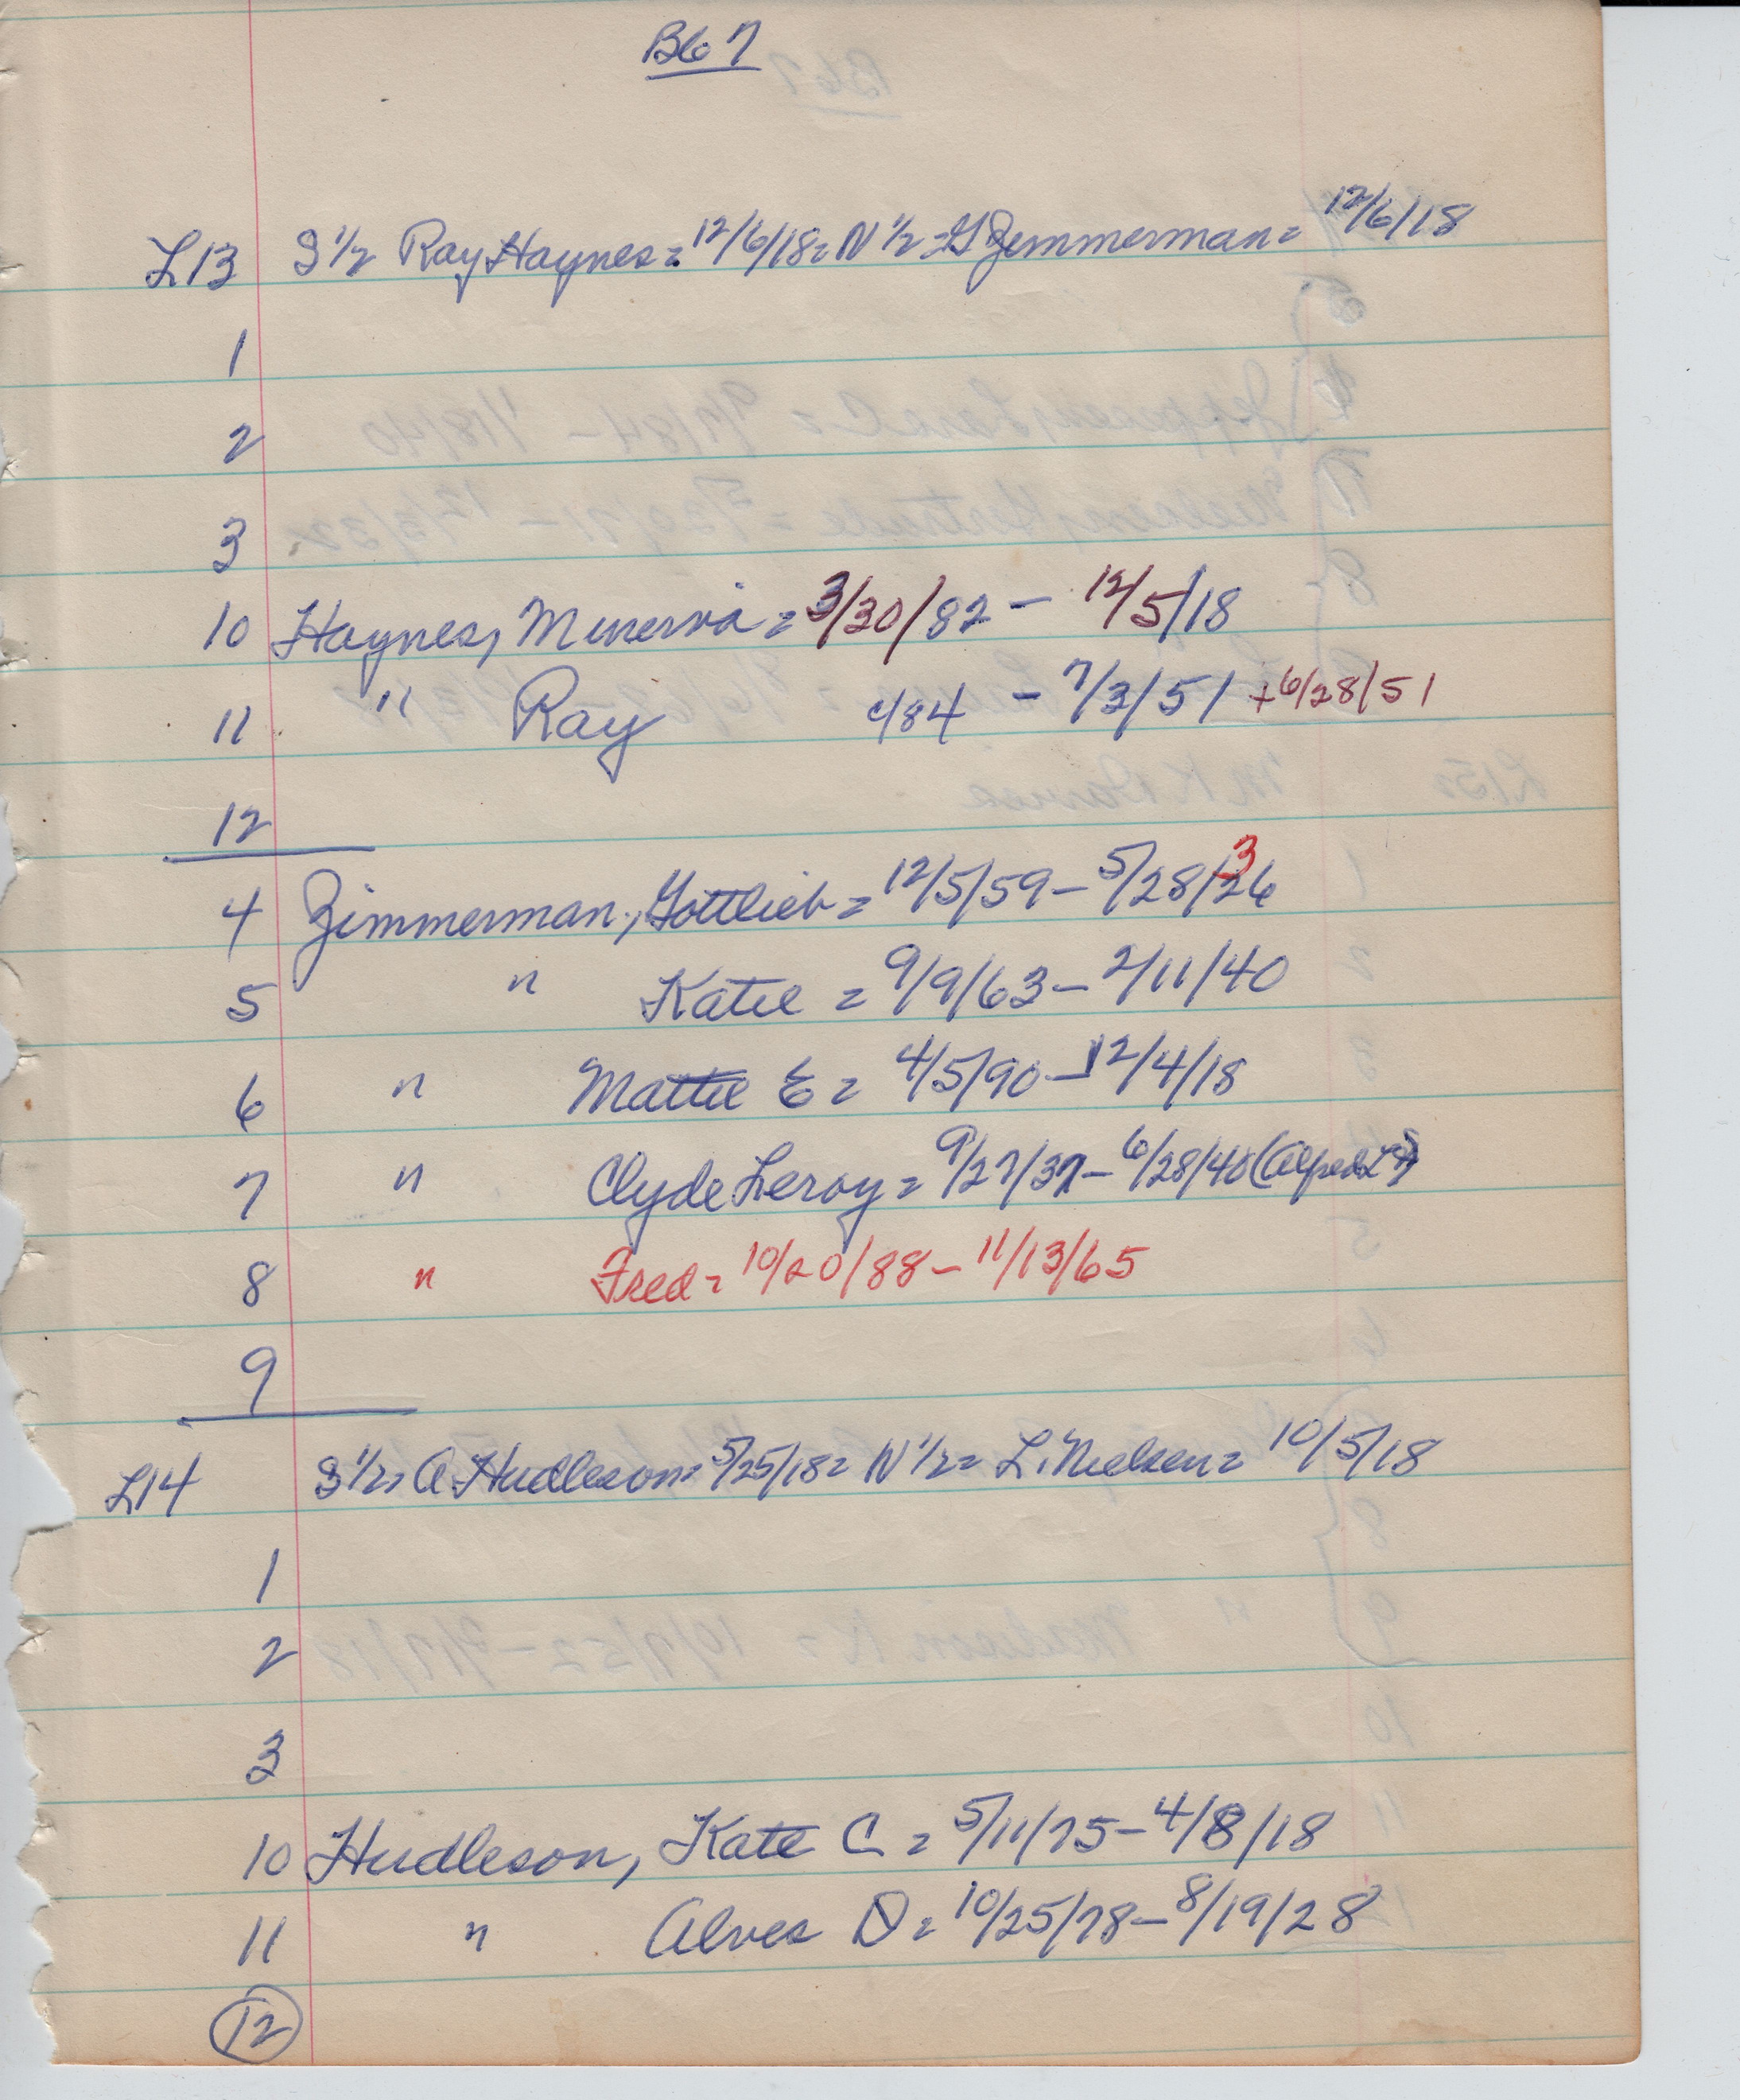 B67
L13 S 1/2 Ray Haynes = 12/6/18 = N 1/2 = G Zimmerman = 12/6/18
1
2
3
10 Haynes, Minerva = 3/30/82 - 12/5/18
11 " Ray c/84 - 7/3/51 +6/28/51
12
4 Zimmerman, Gottlieb = 12/5/59 - 5/28/26 3
5 " Katie = 9/9/63 - 2/11/40
6 " Mattie E = 4/5/90 - 12/4/18
7 " Clyde Leroy = 9/27/37 - 6/28/40 (Alfred
8 " Fred = 10/20/88 - 11/13/65
9
L14 S 1/2 = A Hudleson = 5/25/18 = N 1/2 = L. Nielsen = 10/5/18
1
2
3
10 Hudleson, Kate C = 5/11/75 - 4/8/18
11 " Alves D = 10/25/78 - 8/19/28
12